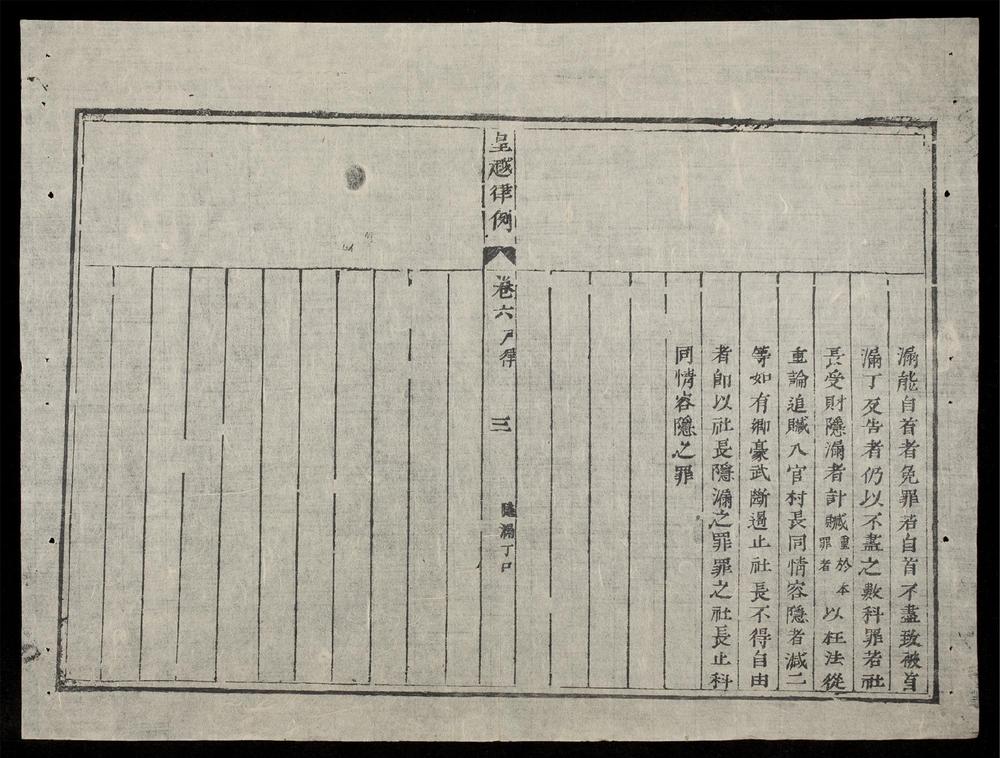 漏能自首者免罪若自首不盡致被首
漏丁反告者仍以不盡之數科罪若社
長受財隱漏者計贓重於本罪者以枉法從
重論追贓入官村長同情容隱者減二
等如有鄉豪武斷過止社長不得自由
者卽以社長隱漏之罪罪之社長止科
同情容隱之罪
皇越律例
卷六 戶律
三
隱漏丁口